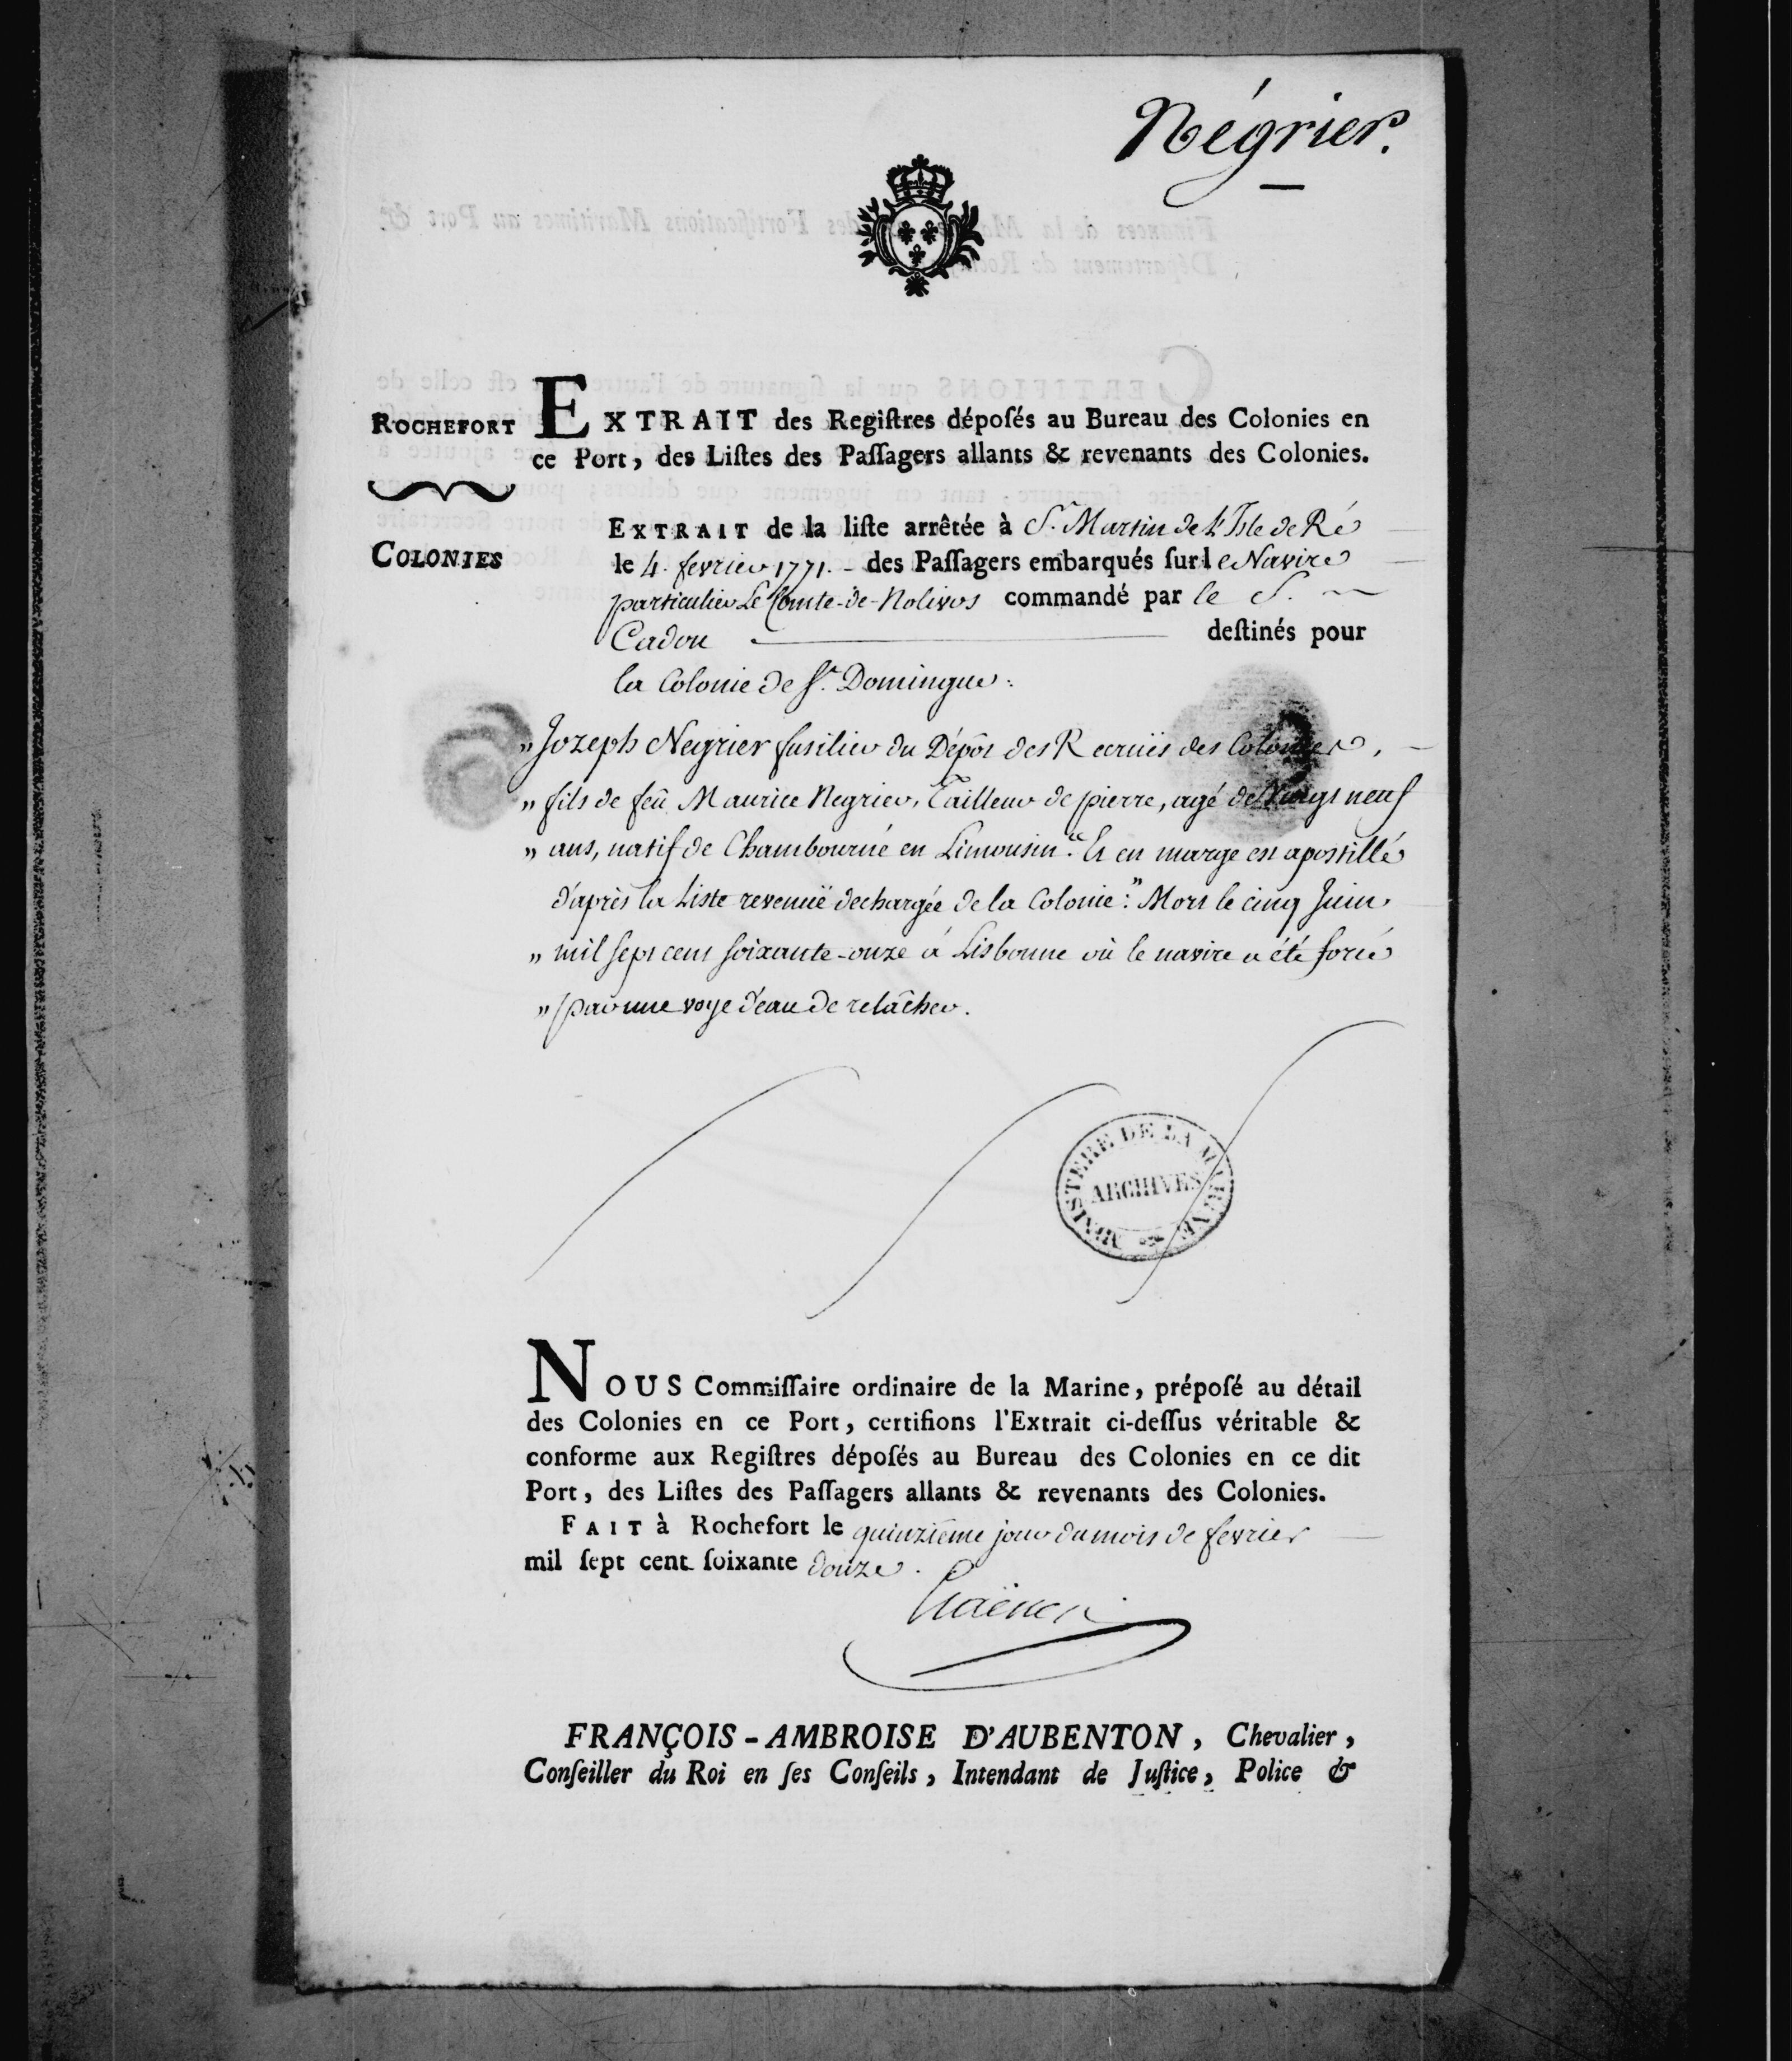 Négrier.
ROCHEFORT
COLONIES
EXTRAIT des Regiſtres dépoſés au Bureau des Colonies en
ce Port, des Liſtes des Paſſagers allants & revenants des Colonies.
EXTRAIT de la liſte arrêtée à St. Martin de l'Isle de Ré
le 4. fevrier 1771. - des Paſſagers embarqués ſur le Navire
particulier Le Comte-de-Nolivos commandé par le S.
Cadou destinés pour
la Colonie de St. Domingue.
" Jozeph Negrier fusilier du Dépôt des Recruës des Colonies,
" fils de feû Maurice Negrier, Tailleur de pierre, agé de Vingt neuf
" ans, natif de Chambourné en Limousin." Et en marge est apostillé
d'après la Liste revenuë dechargée de la Colonie: " Mort le cinq Juin
" mil sept cent soixante-onze à Lisbonne où le navire a été forcé
" par une voye d'eau de relâcher.
MINISTERE DE LA MARINE
ARCHIVES
NOUS Commiſſaire ordinaire de la Marine, prépoſé au détail
des Colonies en ce Port, certifions l'Extrait ci-deſſus véritable &
conforme aux Regiſtres dépoſés au Bureau des Colonies en ce dit
Port, des Liſtes des Paſſagers allants & revenants des Colonies.
FAIT à Rochefort le quinziême jour du mois de fevrier
mil ſept cent ſoixante douze.
FRANÇOIS-AMBROISE D'AUBENTON, Chevalier,
Conſeiller du Roi en ſes Conſeils, Intendant de Juſtice, Police &